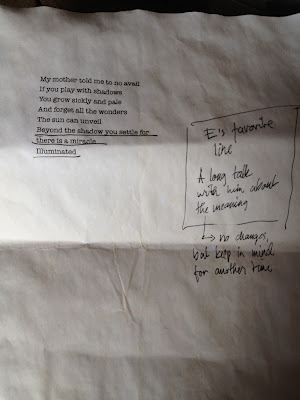 My mother told me to no avail
If you play with shadows
You grow sickly and pale
And forget all the wonders
The sun can unveil
Beyond the shadow you settle for
there is a miracle
Illuminated
E's favorite
line
A long talk
with him about
the meaning
→ no changes,
but keep in mind
for another time